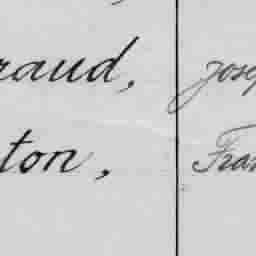 raud, Jose
ton, Fran